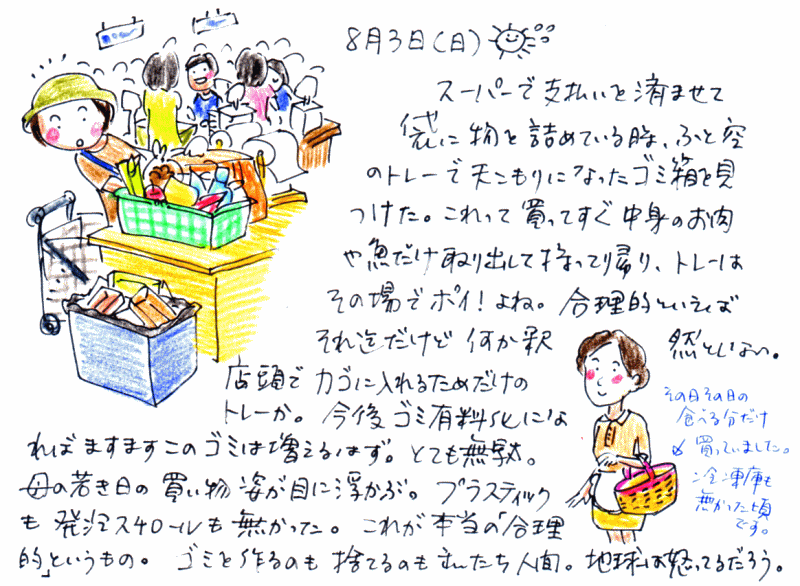 8月3日(日)
スーパーで支払いを済ませて
袋に物を詰めている時、ふと空
のトレーで天こもりになったゴミ箱を見
つけた。これって買ってすぐ中身のお肉
や魚だけ取り出して持って帰り、トレーは
その場でポイ!よね。合理的といえば
それ迄だけど何か釈然としない。
店頭でカゴに入れるためだけの
トレーか。今後ゴミ有料化にな
ればますますこのゴミは増えるはず。とても無駄。
母の若き日の買い物姿が目に浮かぶ。プラスティック
も発泡スチロールも無かった。これが本当の「合理
的」というもの。ゴミを作るのも捨てるのも私たち人間。地球は怒ってるだろう。
その日その日の
食べる分だけ
買っていました。
冷凍庫も
無かった頃
です。